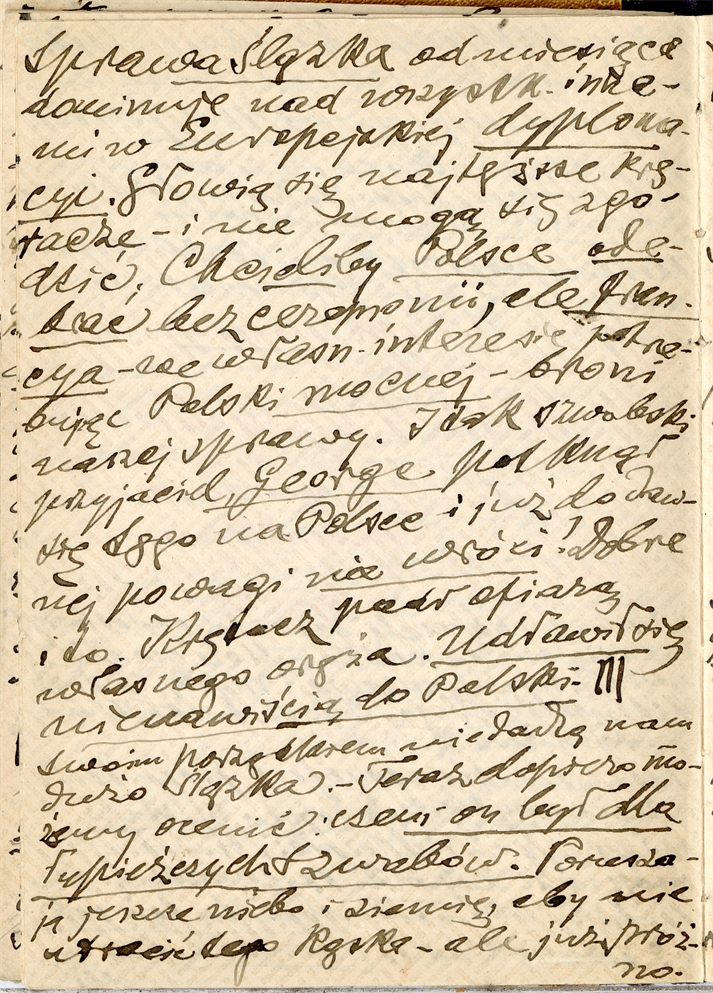 Sprawa Ślązka od miesiąca
dominuje nad wszystk. inne-
mi w Europejskiej dyploma-
cyi. Głowią się najtęższe krę-
tacze – i nie mogą się zgo-
dzić. Chcieliby Polsce ode-
brać bez ceremonii, ale Fran-
cya – we własn. interesie potrze-
bując Polski mocnej – broni
naszej sprawy. I tak szwabski
przyjaciel, George połknął
się tego na Polsce i już do daw-
nej powagi nie wróci! Dobre
i to. Kręтacz padł ofiarą
własnego oręża. Udławił się
nienawiścią do Polski.
Swoim porządkiem nie dadzą nam
dużo Ślązka. – Teraz dopiero mo-
żemy ocenić: czem on był dla
łupieżczych Szwabów. Porusza-
ją jeszcze niebo i ziemię, aby nie
utracić tego kąska – ale już próż-
no.